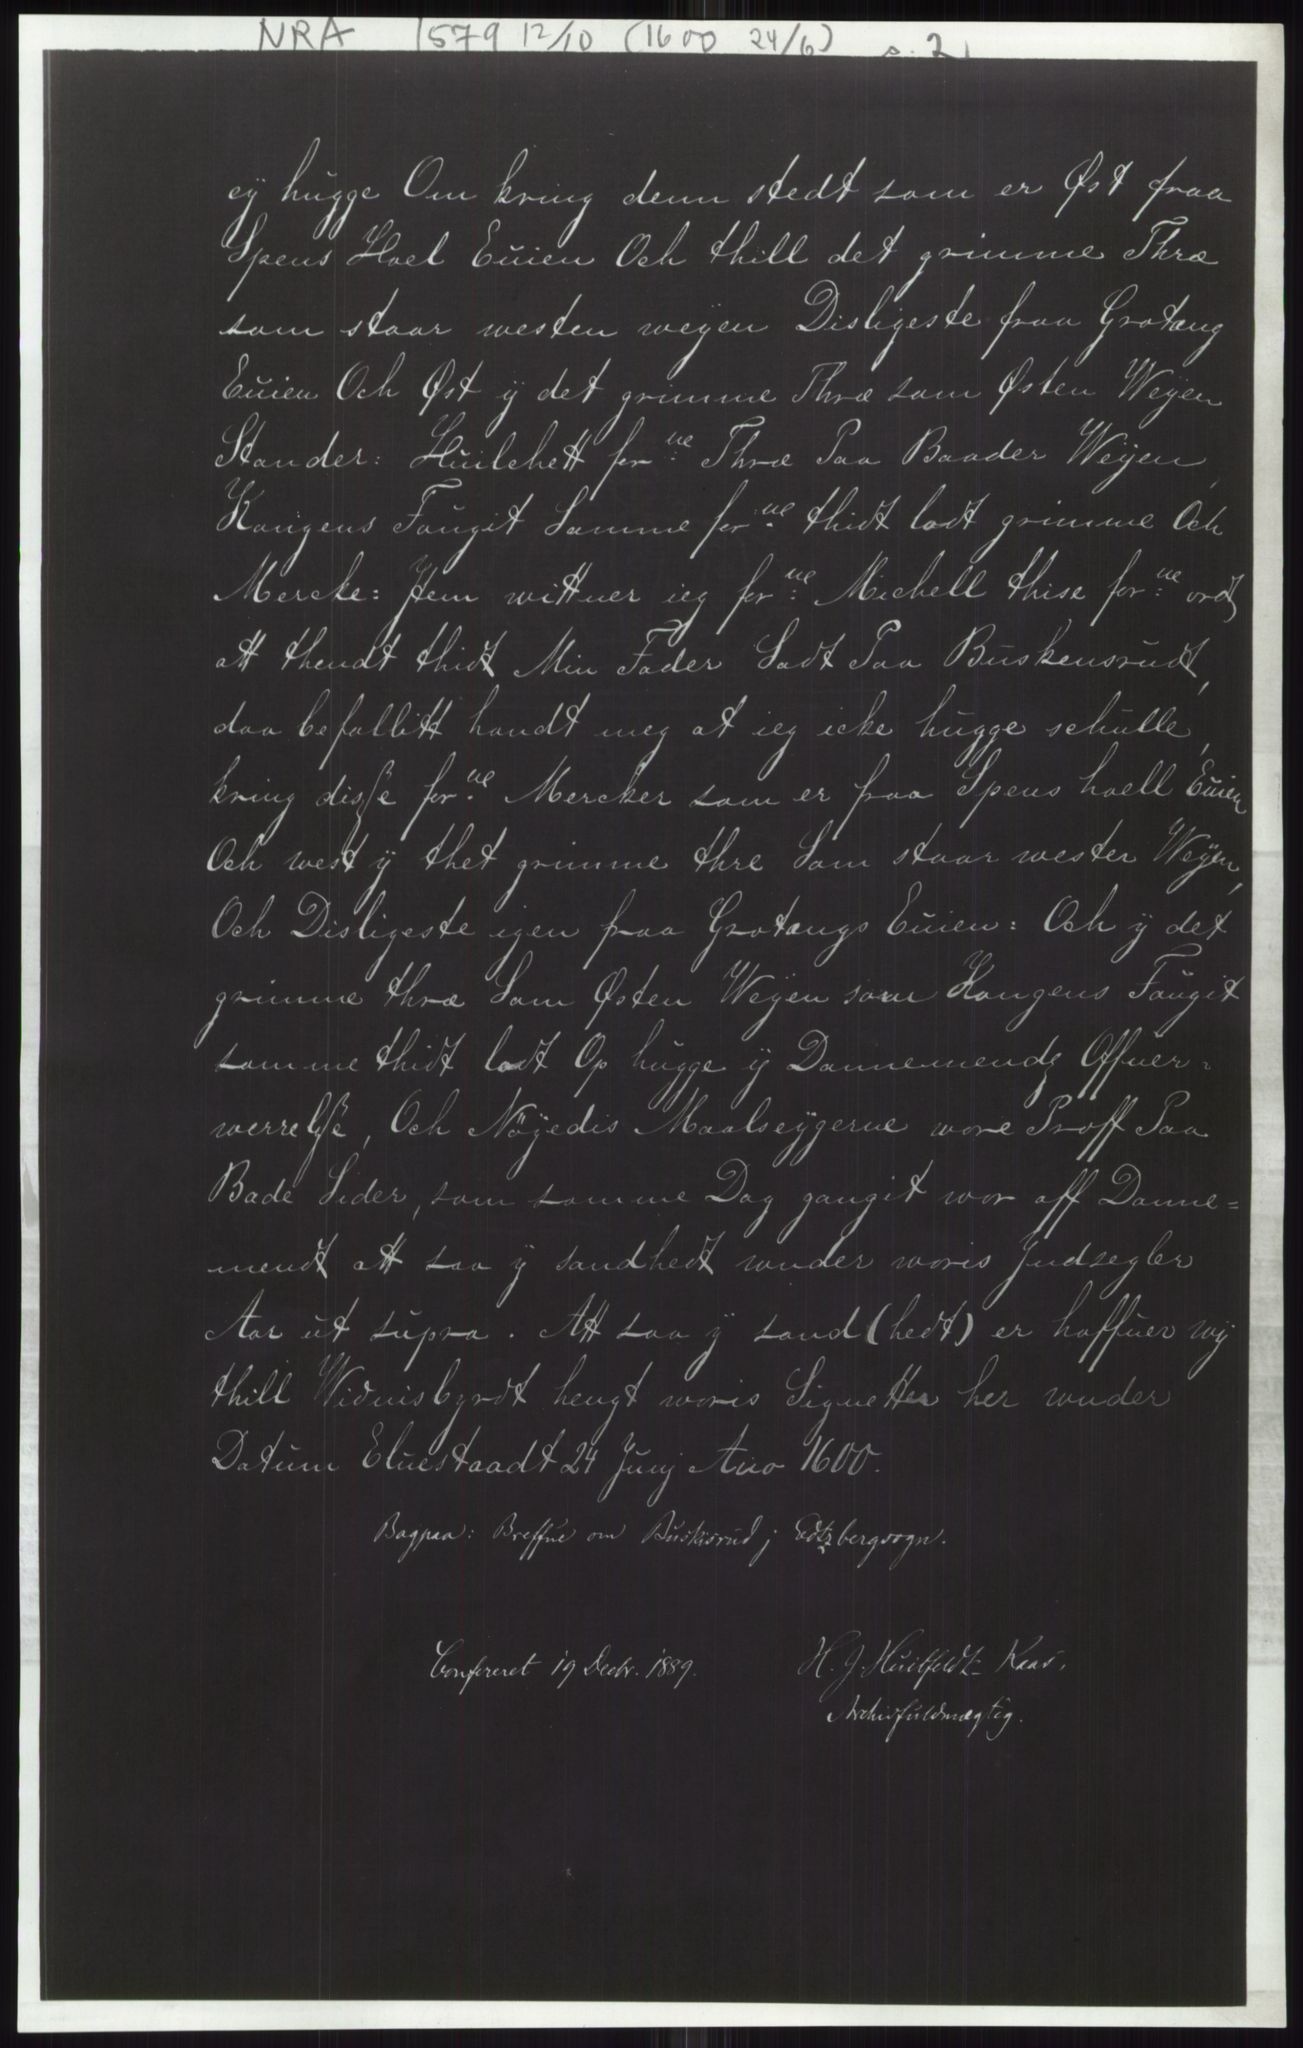 NRA 1579 12/10 (1600 24/6) s. 2
eÿ hugge Om kring denn stedt som er Øst fraa
Spens Hoel Euien Och thill det grimme Thræ
som staar westen weÿen Disligeste fraa Grotang
Euien Och Øst ÿ det grimme Thræ som Østen Weÿen
Stander: Huilchett forne Thræ Paa Baader Weÿen,
Kongens Fougit Samme forne thidt lodt grimme Och
Mercke: Jtem wittner ieg forne Michell thise forne ordt
att thendt thidt Min Fader Sadt Paa Buskensrudt,
daa befallitt handt meg at ieg icke hugge schulle,
kring disse forne Mercker som er fraa Spens hoell Euien
Och west ÿ thet grimme thre Som staar wester Weÿen,
Och Disligeste igen fraa Grotangs Euien: Och ÿ det
grimme thræ Som Østen Weÿen som Kongens Fougit
samme thidt lodt Op hugge ÿ Dannemends Offuer=
werrelse, Och Nöÿedis Maalseÿgerne wore Proff Paa
Bade Sider, som samme Dag gangit wor aff Danne=
mendt att saa ÿ sandhedt wnder woris Jndsegler
Aar ut supra. Att saa ÿ sand(hedt) er haffuer wÿ
thill Widnisbyrdt hengt woris Signetter her wnder
Datum Eluestaadt 24 Junj Ano 1600.
Bagpaa: Breffue om Buskisrud j Edtzbergsogn.
Confereret 19 Decbr. 1889.
H. J. Huitfeldt-Kaas,
Archivfuldmægtig.